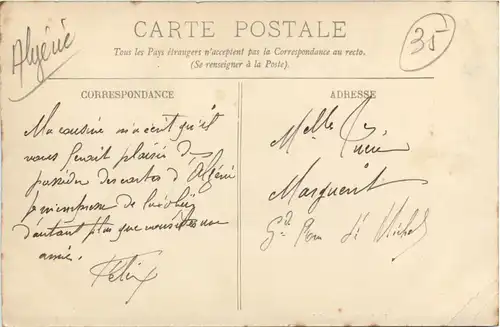 Algérie
CARTE POSTALE
35
Tous les Pays étrangers n'acceptent pas la Correspondance au recto.
(Se renseigner à la Poste).
CORRESPONDANCE
ADRESSE
Ma cousine m'écrit qu'il
vous ferait plaisir de
posséder des cartes d'Algérie
je m'empresse de
d'autant plus que vous êtes une
amie.
Félix
Melle
Marguerit
Gde Rue St Michel